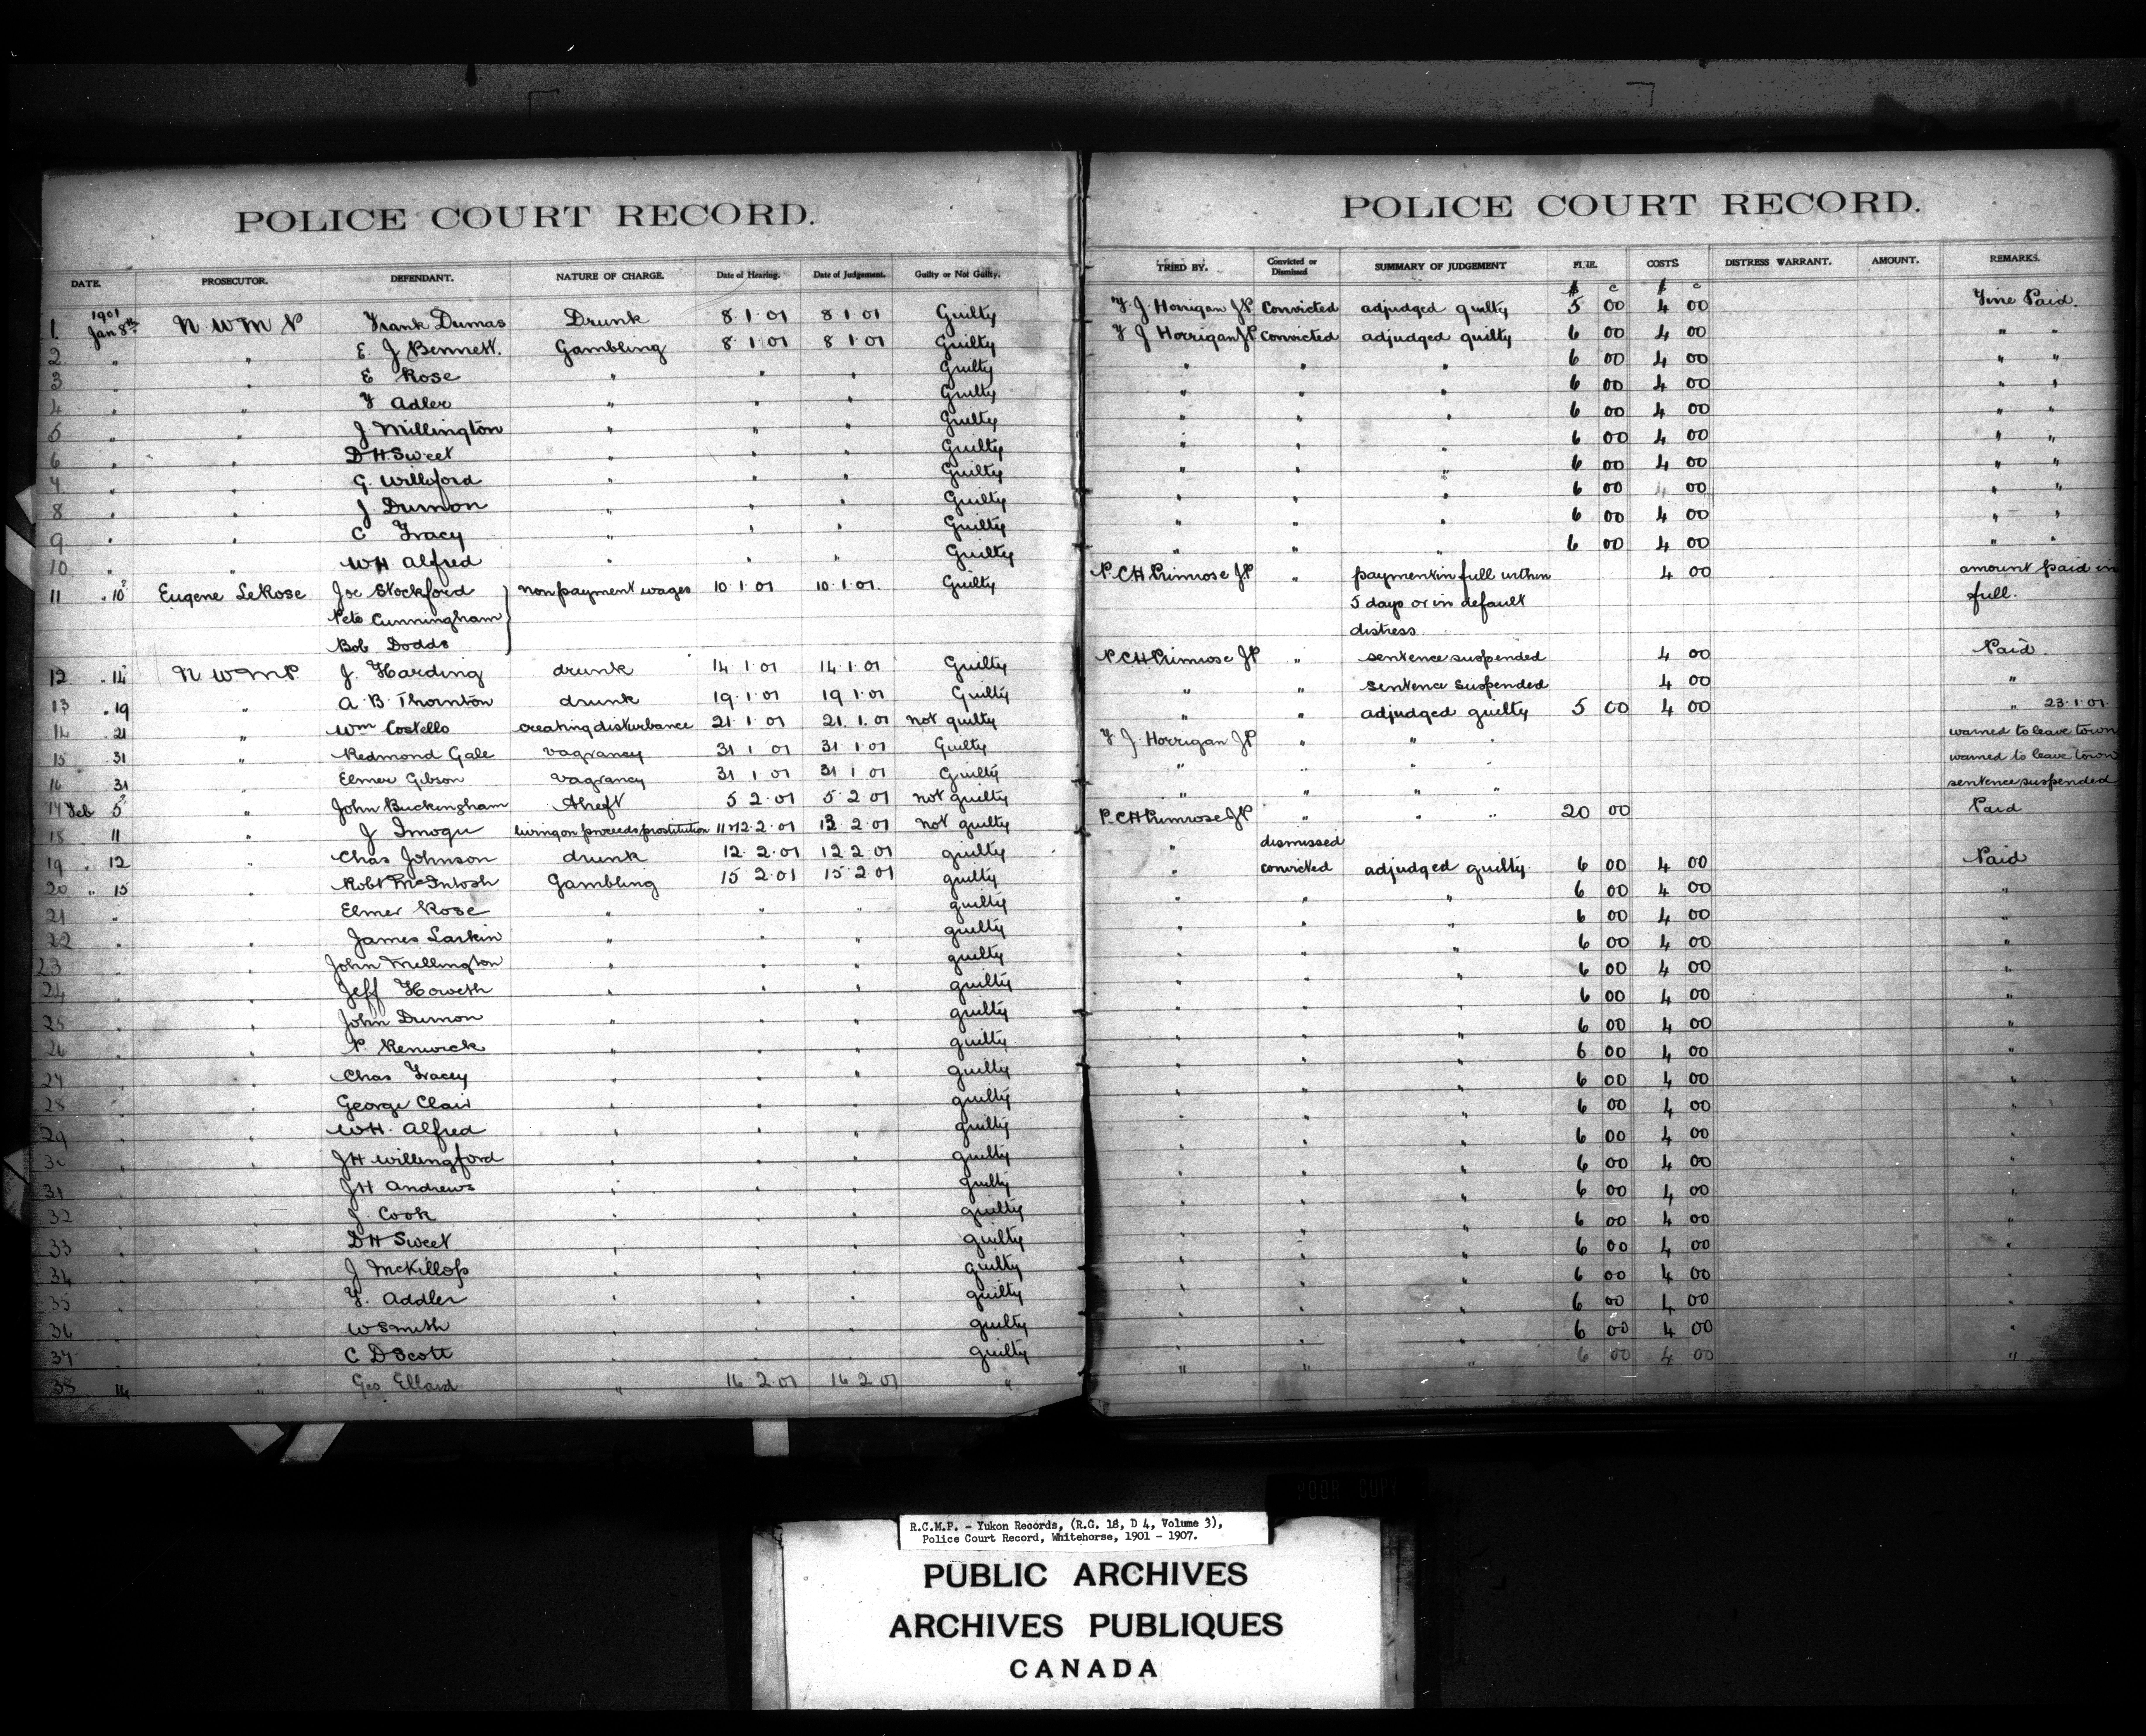 POLICE COURT RECORD.
DATE. PROSECUTOR. DEFENDANT. NATURE OF CHARGE. Date of Hearing. Date of Judgement. Guilty or Not Guilty.
1901
1. Jan 8th N.W.M.P Frank Dumas Drunk 8.1.01 8 1 01 Guilty
2 " " E. J Bennett. Gambling 8.1.01 8 1.01 Guilty
3 " " E Rose " " " Guilty
4 " " F Adler " " " Guilty
5 " " J. Millington " " " Guilty
6 " " D H Sweet " " " Guilty
7 " " G. Williford " " " Guilty
8 " " J Dumon " " " Guilty
9 " " C Tracy " " " Guilty
10 " " WH Alfred " " " Guilty
11 " 10 Eugene LeRose Joe Stockford } non payment wages 10.1.01 10.1.01. Guilty
Pete Cunningham
Bob Dodds
12 " 14 N W M P J. Harding drunk 14.1.01 14.1.01 Guilty
13 " 19 " A.B. Thornton drunk 19.1.01 19 1.01 Guilty
14 " 21 " Wm Costello creating disturbance 21.1.01 21.1.01 not guilty
15 31 " Redmond Gale vagrancy 31 1 01 31 1.01 Guilty
16 31 " Elmer Gibson vagrancy 31 1 01 31 1 01 Guilty
17 Feb 5 " John Buckingham theft 5 2.01 5 2.01 not guilty
18 11 " J Imogu living on proceeds prostitution 11 & 12.2.01 13 2.01 not guilty
19 " 12 " Chas Johnson drunk 12.2.01 12 2 01 guilty
20 " 15 " Robt McIntosh Gambling 15 2.01 15 2.01 guilty
21 " " Elmer Rose " " " guilty
22 " " James Larkin " " " guilty
23 " " John Millington " " " guilty
24 " " Jeff Howeth " " " guilty
25 " " John Dumon " " " guilty
26 " " P. Renwick " " " guilty
27 " " Chas Tracey " " " guilty
28 " " George Clair " " " guilty
29 " " WH. Alfred " " " guilty
30 " " JH Willingford " " " guilty
31 " " JH Andrews " " " guilty
32 " " J. Cook " " " guilty
33 " " DH Sweet " " " guilty
34 " " J McKillop " " " guilty
35 " " F. Addler " " " guilty
36 " " W Smith " " " guilty
37 " " C D Scott " " " guilty
38 16 " Geo Ellard " 16.2.01 16 2 01 "
POLICE COURT RECORD.
TRIED BY. Convicted or Dismissed SUMMARY OF JUDGEMENT FINE. COSTS DISTRESS WARRANT. AMOUNT. REMARKS.
$ c $ c
F. J. Horrigan JP Convicted adjudged guilty 5 00 4 00 Fine Paid.
F J Horrigan JP Convicted adjudged guilty 6 00 4 00 " "
" " " 6 00 4 00 " "
" " " 6 00 4 00 " "
" " " 6 00 4 00 " "
" " " 6 00 4 00 " "
" " " 6 00 4 00 " "
" " " 6 00 4 00 " "
" " " 6 00 4 00 " "
" " " 6 00 4 00 " "
P.C H Primrose JP " payment in full within 4 00 amount paid in
5 days or in default full.
distress
P.C H Primrose JP " sentence suspended 4 00 Paid.
" " sentence suspended 4 00 "
" " adjudged guilty 5 00 4 00 " 23.1.01.
F J. Horrigan JP " " " warned to leave town
" " " " warned to leave town
" " " " sentence suspended
P.C H Primrose JP " " " 20 00 Paid
" dismissed
" convicted adjudged guilty. 6 00 4 00 Paid
" " " 6 00 4 00 "
" " " 6 00 4 00 "
" " " 6 00 4 00 "
" " " 6 00 4 00 "
" " " 6 00 4 00 "
" " " 6 00 4 00 "
" " " 6 00 4 00 "
" " " 6 00 4 00 "
" " " 6 00 4 00 "
" " " 6 00 4 00 "
" " " 6 00 4 00 "
" " " 6 00 4 00 "
" " " 6 00 4 00 "
" " " 6 00 4 00 "
" " " 6 00 4 00 "
" " " 6 00 4 00 "
" " " 6 00 4 00 "
" " " 6 00 4 00 "
POOR COPY
R.C.M.P. - Yukon Records, (R.G. 18, D 4, Volume 3),
Police Court Record, Whitehorse, 1901 - 1907.
PUBLIC ARCHIVES
ARCHIVES PUBLIQUES
CANADA